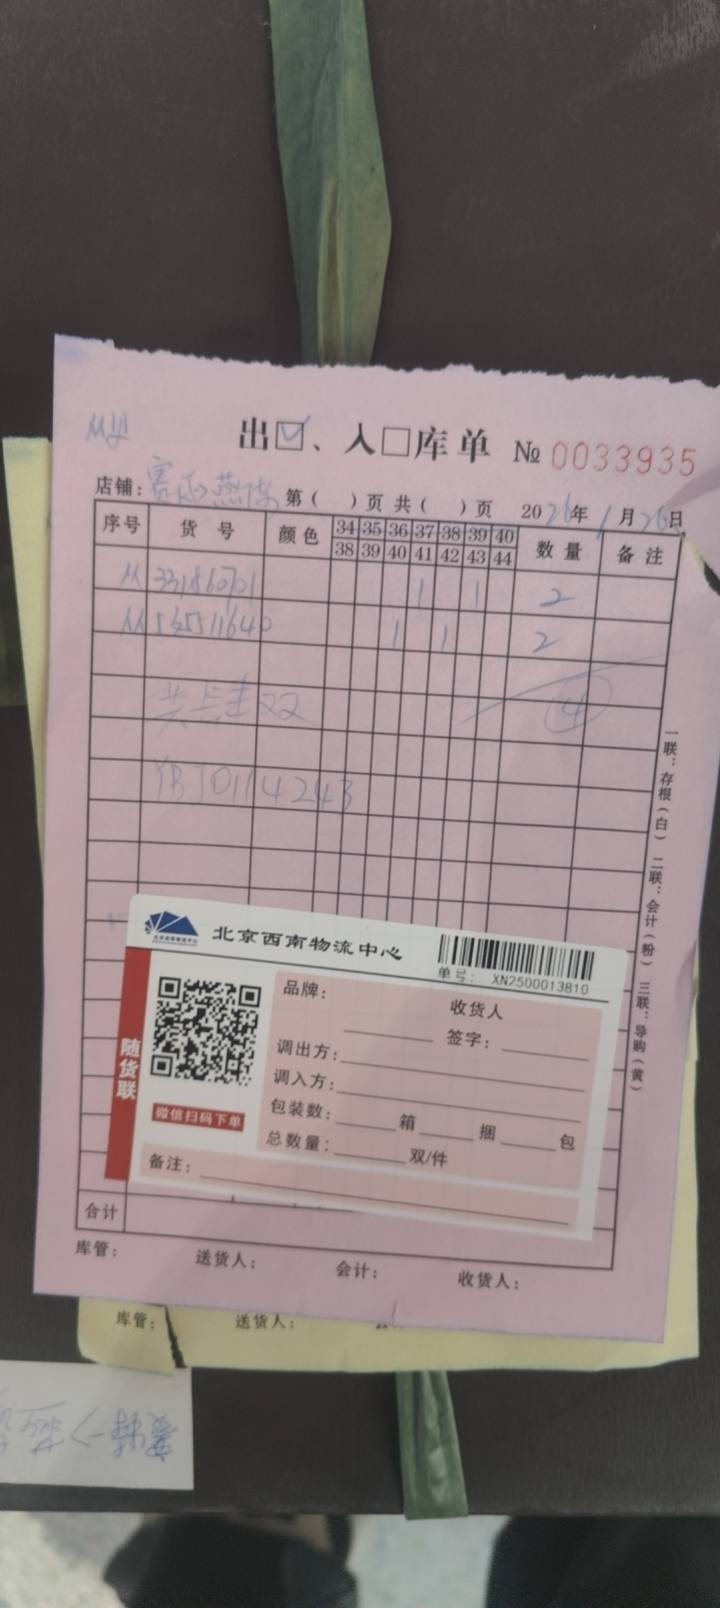 出☑、入□库单 № 0033935
店铺: 第( )页 共( )页 2026年1月26日
序号 货号 颜色 34 35 36 37 38 39 40 数量 备注
38 39 40 41 42 43 44
1 1 2
1 1 2
④
YBJ0114243
一联:存根(白) 二联:会计(粉) 三联:导购(黄)
北京西南物流中心
单号: XN2500013810
随货联
微信扫码下单
品牌: 收货人
签字:
调出方:
调入方:
包装数: 箱 捆 包
总数量: 双/件
备注:
合计
库管: 送货人: 会计: 收货人:
库管: 送货人: